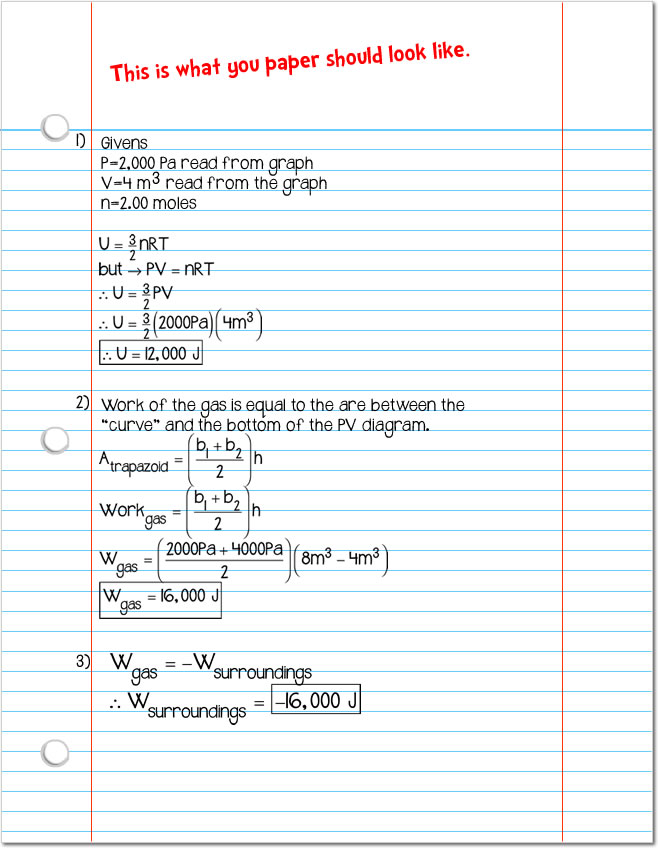 This is what you paper should look like.
1) Givens
P=2,000 Pa read from graph
V=4 m³ read from the graph
n=2.00 moles
U = 3/2 nRT
but → PV = nRT
∴ U = 3/2 PV
∴ U = 3/2 (2000Pa)(4m³)
∴ U = 12,000 J
2) Work of the gas is equal to the are between the
“curve” and the bottom of the PV diagram.
A_trapazoid = ((b₁ + b₂)/2) h
Work_gas = ((b₁ + b₂)/2) h
W_gas = ((2000Pa + 4000Pa)/2)(8m³ − 4m³)
W_gas = 16,000 J
3) W_gas = −W_surroundings
∴ W_surroundings = −16,000 J